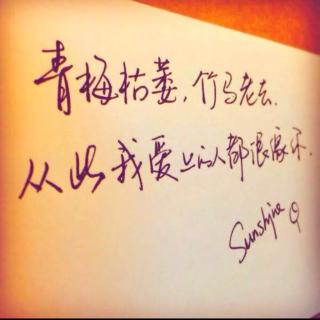 青梅枯萎,竹马老去.
从此我爱上的人都很像你.
Sunshine